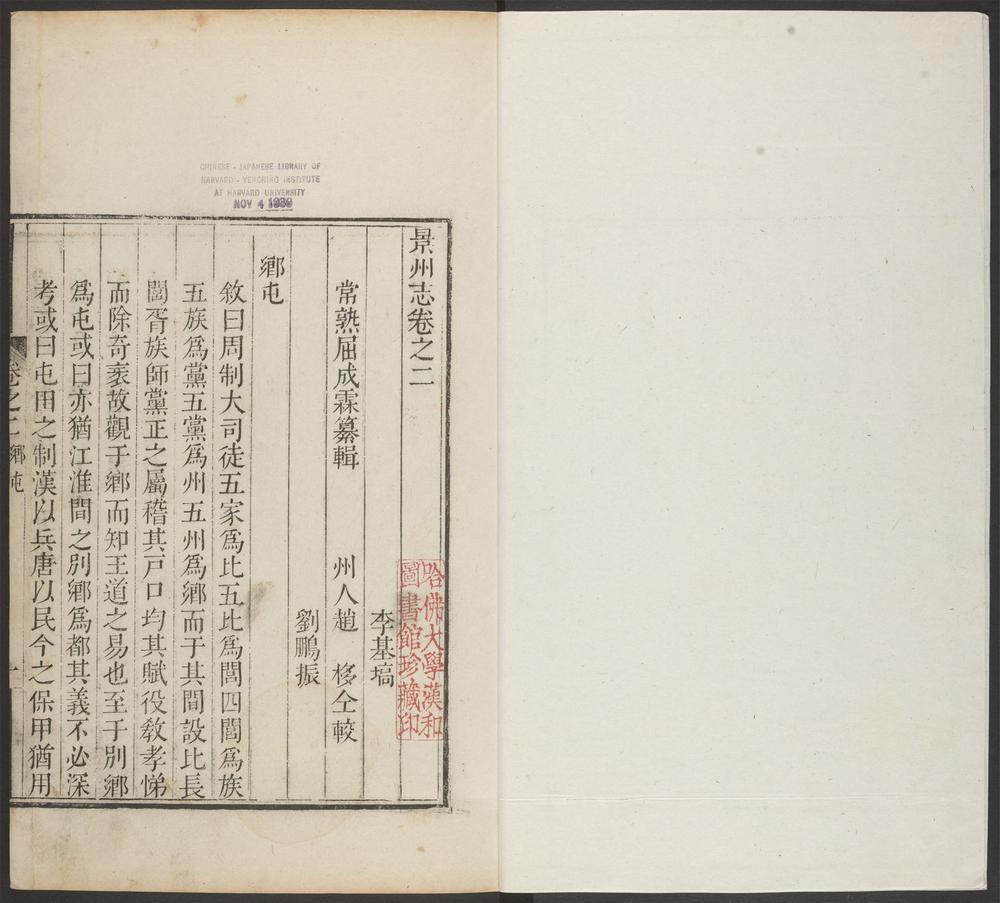 CHINESE - JAPANESE LIBRARY OF
HARVARD - YENCHING INSTITUTE
AT HARVARD UNIVERSITY
NOV 4 1939
景州志卷之二
李基塙
常熟屈成霖纂輯 州人趙 移仝較
劉鵬振
鄉屯
敘曰周制大司徒五家爲比五比爲閭四閭爲族
五族爲黨五黨爲州五州爲鄉而于其間設比長
閭胥族師黨正之屬稽其戸口均其賦役敎孝悌
而除奇衺故觀于鄉而知王道之易也至于別鄉
爲屯或曰亦猶江淮間之別鄉爲都其義不必深
考或曰屯田之制漢以兵唐以民今之保甲猶用
卷之二 鄉屯 一
哈佛大學漢和
圖書館珍藏印